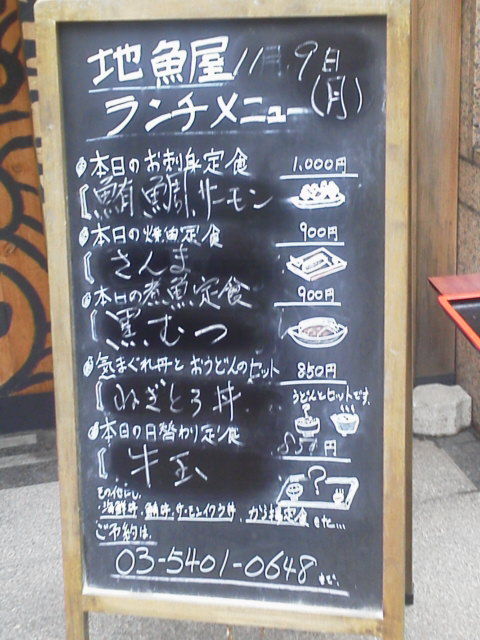 地魚屋 11月9日(月)
ランチメニュー
本日のお刺身定食 1,000円
鮪 鯛 サーモン
本日の焼魚定食 900円
さんま
本日の煮魚定食 900円
黒むつ
気まぐれ丼とおうどんのセット 850円
ねぎとろ丼 うどんとセットです。
本日の日替わり定食 850円
牛玉
?
その他にも、
海鮮丼、鮪丼、サーモンイクラ丼、から揚定食 etc...
ご予約は、
03-5401-0648 まで。